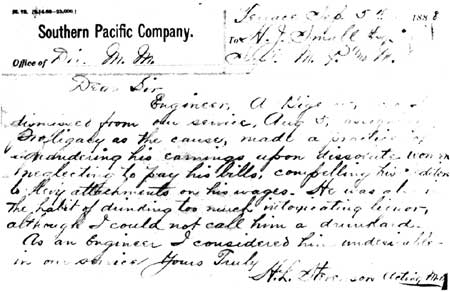 Southern Pacific Company.
Office of Div. M. M.
Terrace Feb 5th 1888
To H. J. Small Esq
Supt. M. P. & M.
Dear Sir
Engineer, A
dismissed from our service, Aug 5,
Profligacy as the cause, made a practice of
squandering his earnings upon dissolute women
neglecting to pay his bills, compelling his
to levy attachments on his wages. He was
the habit of drinking too much intoxicating liquor,
although I could not call him a drunkard.
As an Engineer I considered him undesirable
in our service Yours Truly
H. L. Stevenson Acting M.M.